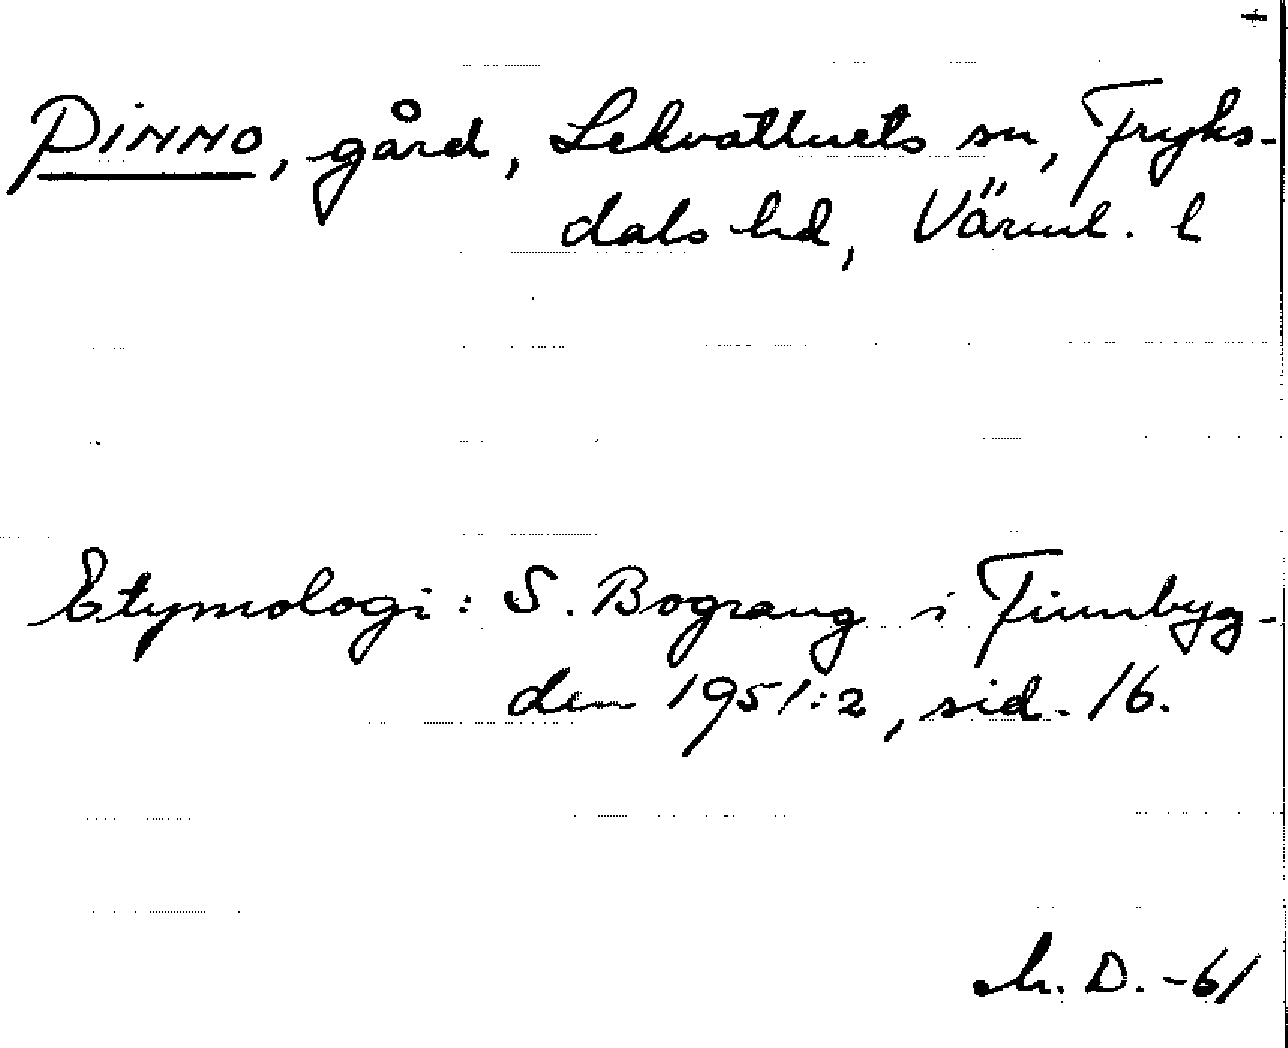 PINNO, gård, Lekvattnets sn, Fryks-
dals hd, Värml. l
Etymologi: S. Bograng i Finnbyg-
den 1951:2, sid. 16.
M. D. -61